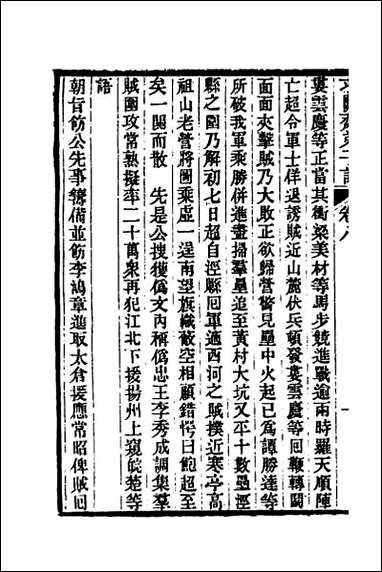 求闕齋弟子記 卷八 一
婁雲慶等正當其衝梁美材等馬步競進戰逾兩時羅天順陣
亡超令軍士佯退誘賊近山麓伏兵頓發婁雲慶等回鞭轉鬬
面面夾擊賊乃大敗正欲歸營瞥見壘中火起已爲譚勝達等
所破我軍乘勝併進盡掃羣壘追至黃村大坑又平十數壘涇
縣之圍乃解初七日超自涇縣回軍適西河之賊撲近寒亭高
祖山老營將圖乘虛一逞南望旗幟蔽空相顧錯愕日飽超至
矣一鬨而散　先是公搜獲僞文內稱僞忠王李秀成調集羣
賊圍攻常熟擬率二十萬衆再犯江北下援揚州上窺皖楚等
語
朝旨飭公先事籌備並飭李鴻章進取太倉援應常昭俾賊囘